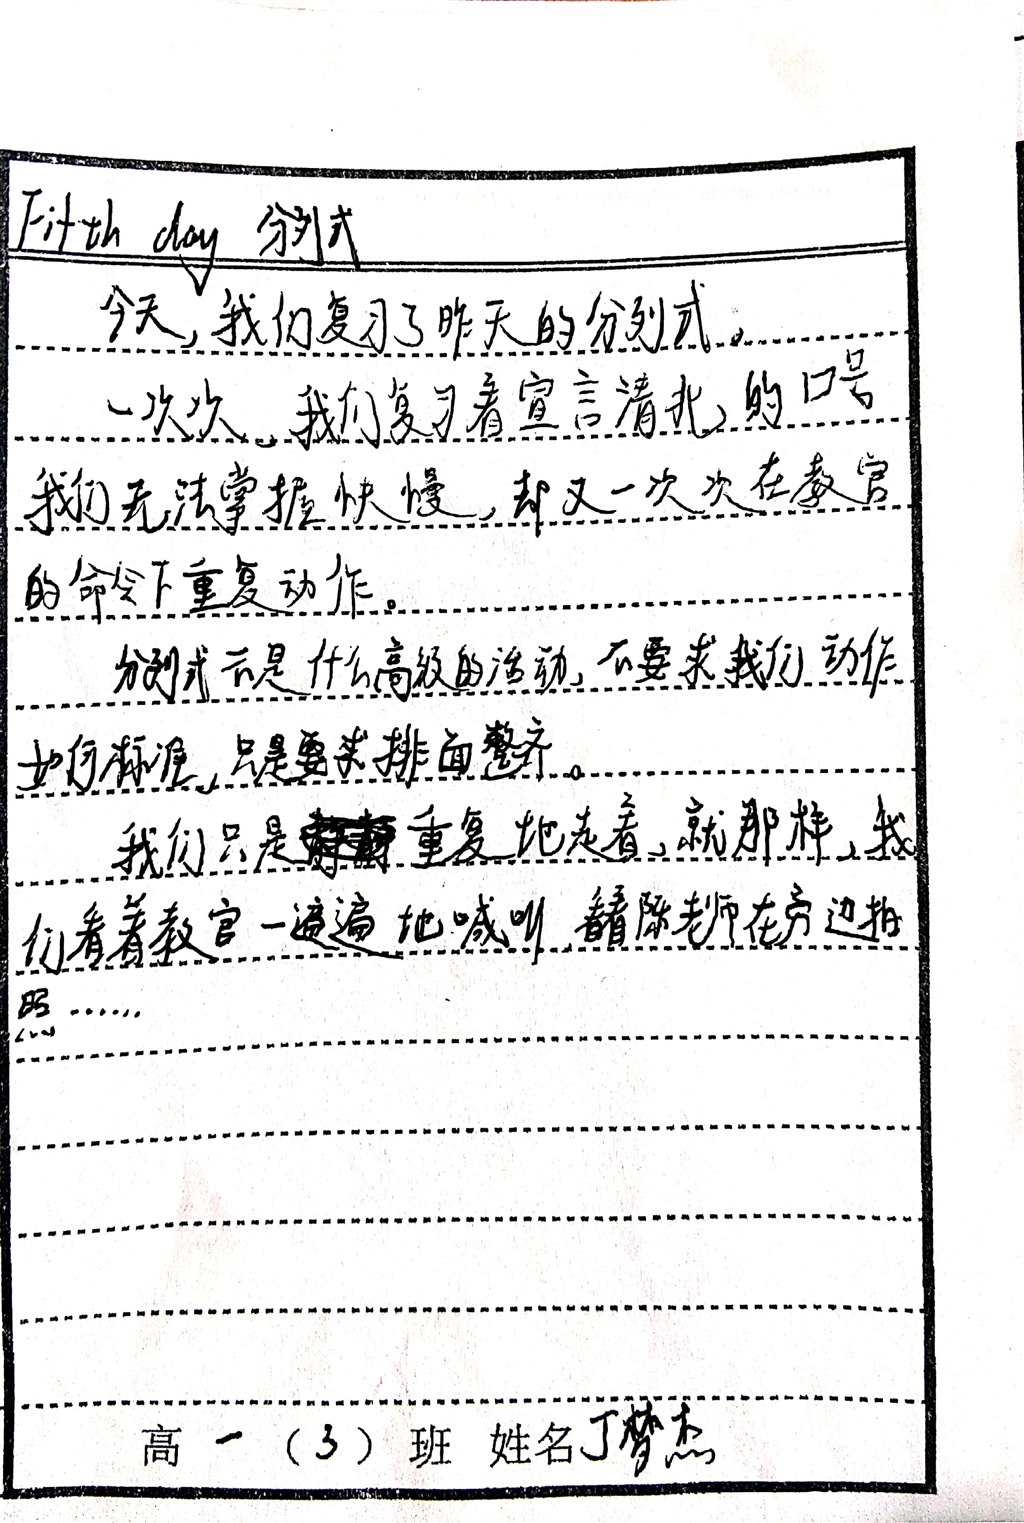 Fifth day 分列式
今天,我们复习了昨天的分列式。
一次次,我们复习着宣言清北,的口号
我们无法掌握快慢,却又一次次在教官
的命令下重复动作。
分列式不是什么高级的活动,不要求我们动作
如何标准,只是要求排面整齐。
我们只是重复地走着,就那样,我
们看着教官一遍遍地喊叫,看陈老师在旁边拍
照……
高一(3)班 姓名丁梦杰